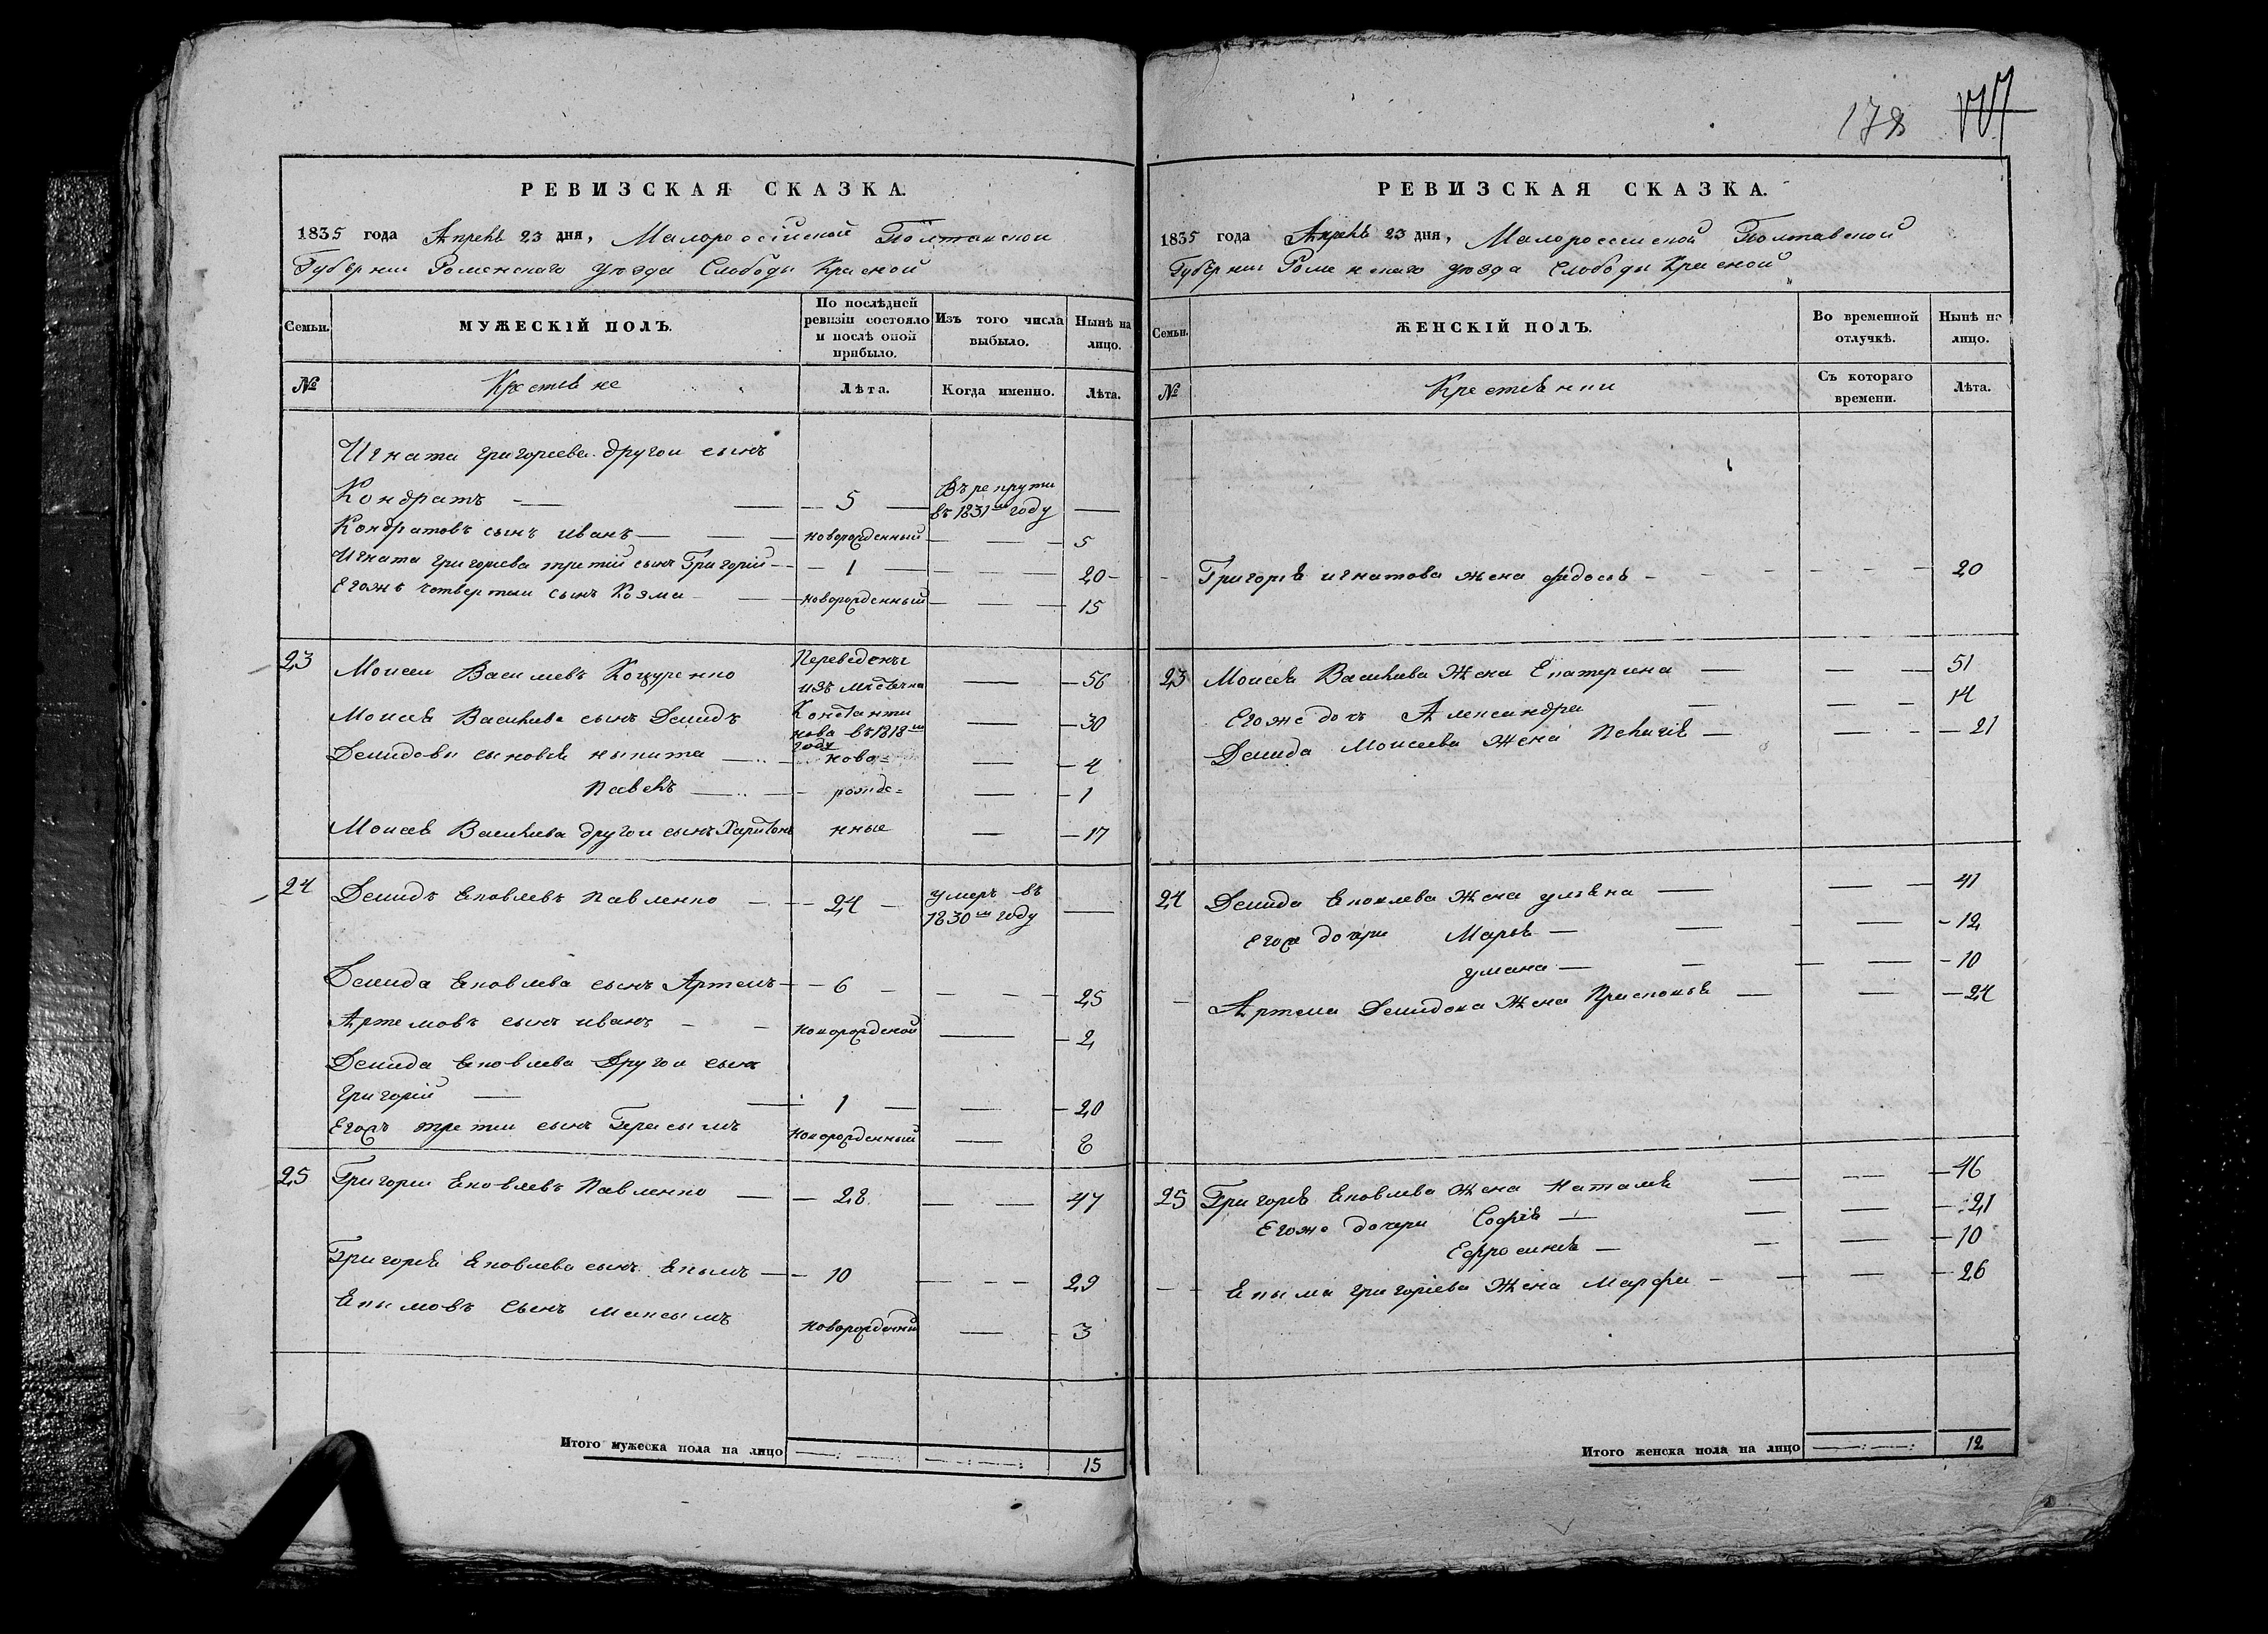 178
РЕВИЗСКАЯ СКАЗКА.
1835 года Апрель 23 дня, Малороссійской Полтавской
Губерніи Роменскаго уезда Слободы Красной
Семьи. МУЖЕСКІЙ ПОЛЪ. По послѣдней ревизіи состояло и послѣ оной прибыло. Изъ того числа выбыло. Нынѣ на лицо.
№ Крестяне Лѣта. Когда именно. Лѣта.
Игната Григорієва другои сынъ
Кондратъ 5 Въ рекруты въ 1831мъ году
Кондратовъ сынъ иванъ новорожденный 5
Игната Григориева третий сынъ Григорій 1 20
Егожъ четвертыи сынъ Козма новорожденный 15
23 Моисеи Василиевъ Коцуренко Переведены изъ местечка 56
Моисея Василиева сынъ Демидъ Константинова въ 1818м году 30
Демидовы сыновя никита ново= 4
павелъ рожде= 1
Моисея Василиева другои сынъ Харитонъ нные 17
24 Демидъ Яковлевъ павленко 24 умеръ въ 1830мъ году
Демида Яковлева сынъ Артемъ 6 25
Артемовъ сынъ иванъ новорожденой 2
Демида Яковлева Другои сынъ
григорій 1 20
Егожъ третии сынъ Герасымъ новорожденный 8
25 Григории Яковлевъ Павленко 28 47
Григорія Яковлева сынъ Якымъ 10 29
Якымовъ сынъ максымъ новорожденный 3
Итого мужеска пола на лицо 15
РЕВИЗСКАЯ СКАЗКА.
1835 года Апрель 23 дня, Малоросссійской Полтавской
Губерніи Роменскаго уезда Слободы Красной
Семьи. ЖЕНСКІЙ ПОЛЪ. Во временной отлучкѣ. Нынѣ на лицо.
№ Крестянки Съ котораго времени. Лѣта.
Григорія игнатова жена федося 20
23 Моисея Василиева Жена Екатерина 51
Егоже дочь Александра 14
Демида Моисеева Жена Пелагія 21
24 Демида Яковлева Жена уляна 41
Егоже дочери Марья 12
уляна 10
Артема Демидова Жена Прасковья 24
25 Григорія Яковлева Жена Наталя 46
Егоже дочери Софія 21
Ефросиния 10
Якыма григоріева Жена Марфа 26
Итого женска пола на лицо 12